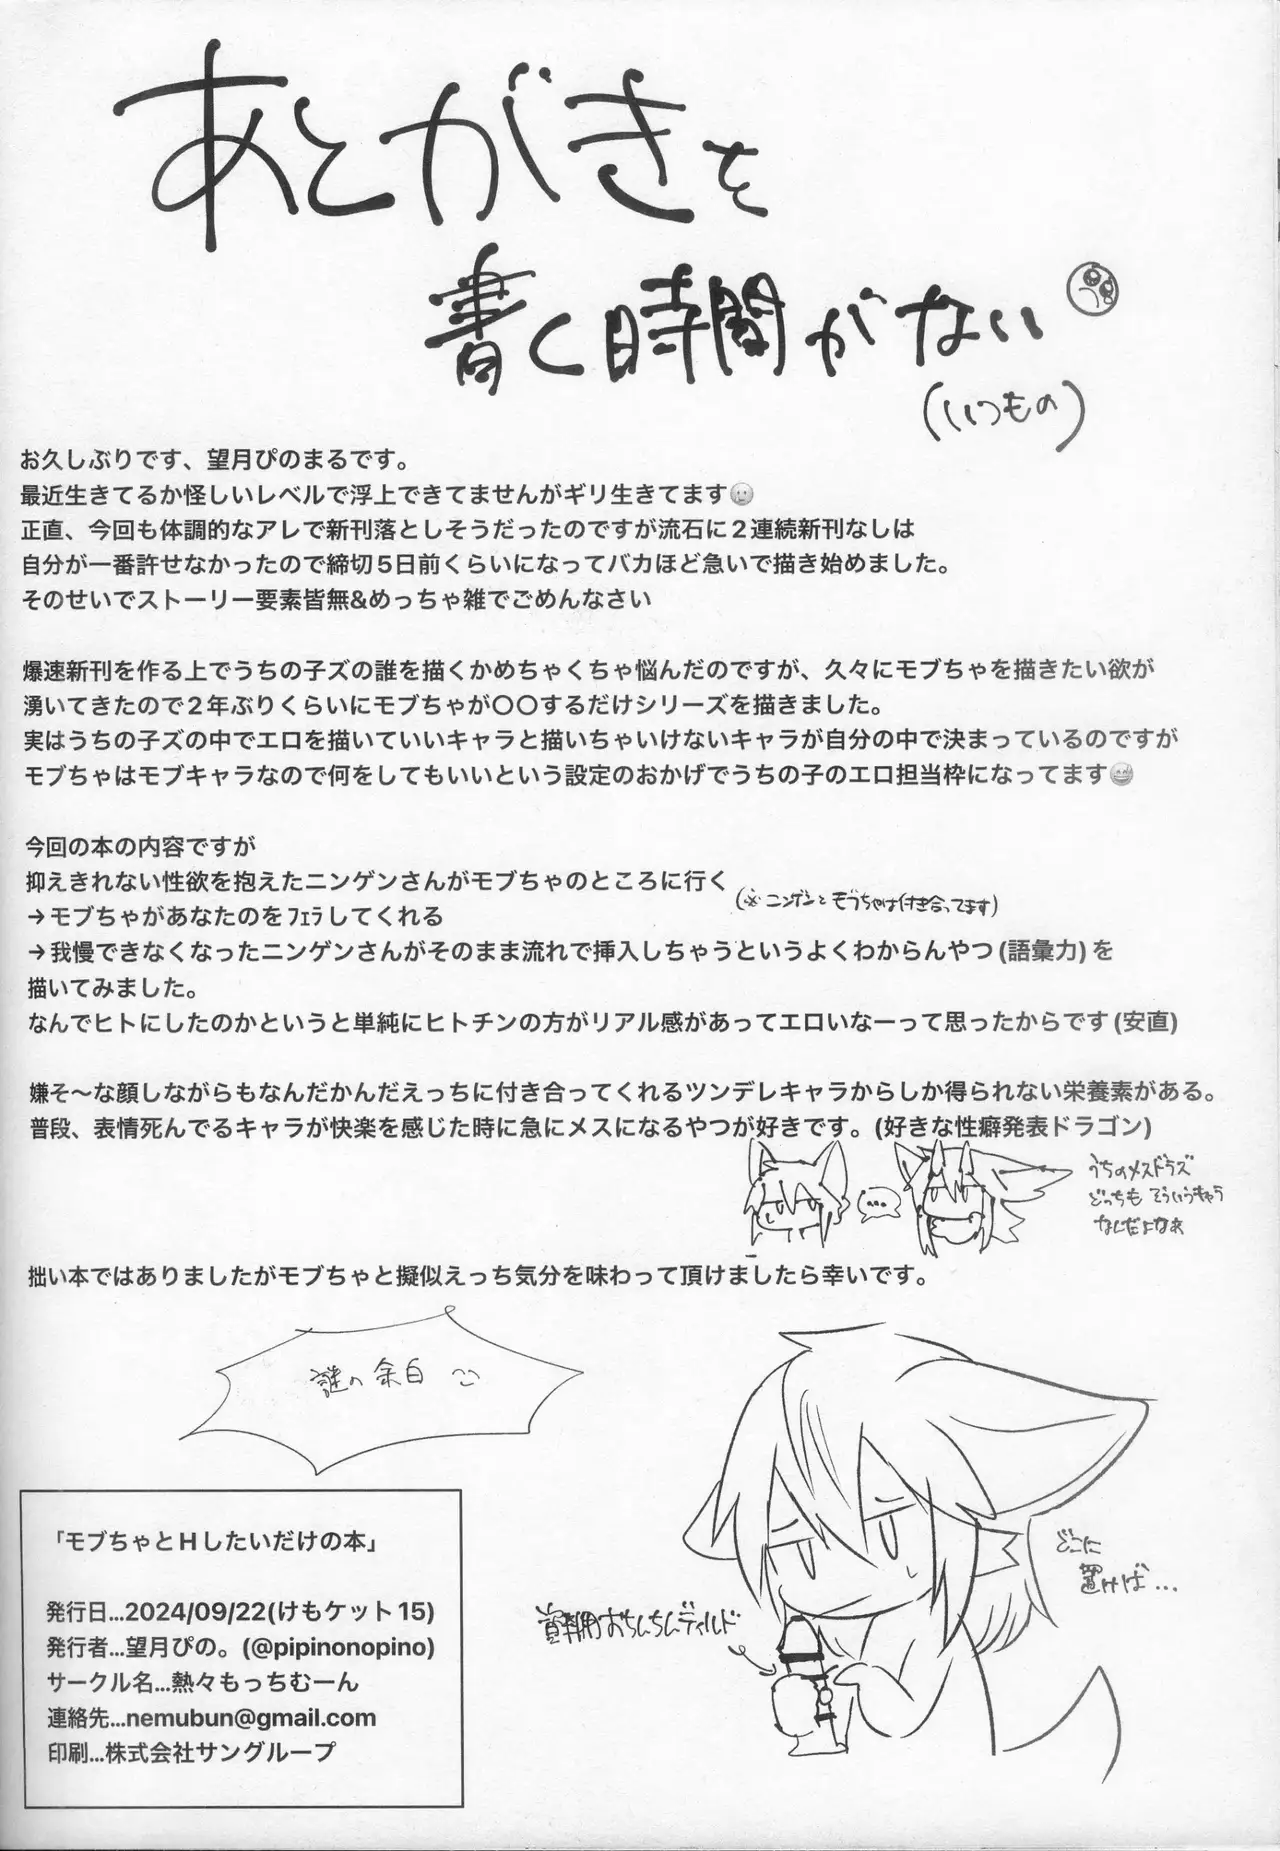 あとがきを
書く時間がない🥺
(いつもの)
お久しぶりです、望月ぴのまるです。
最近生きてるか怪しいレベルで浮上できてませんがギリ生きてます🥲
正直、今回も体調的なアレで新刊落としそうだったのですが流石に２連続新刊なしは
自分が一番許せなかったので締切５日前くらいになってバカほど急いで描き始めました。
そのせいでストーリー要素皆無&めっちゃ雑でごめんなさい
爆速新刊を作る上でうちの子ズの誰を描くかめちゃくちゃ悩んだのですが、久々にモブちゃを描きたい欲が
湧いてきたので２年ぶりくらいにモブちゃが〇〇するだけシリーズを描きました。
実はうちの子ズの中でエロを描いていいキャラと描いちゃいけないキャラが自分の中で決まっているのですが
モブちゃはモブキャラなので何をしてもいいという設定のおかげでうちの子のエロ担当枠になってます😅
今回の本の内容ですが
抑えきれない性欲を抱えたニンゲンさんがモブちゃのところに行く
(※ニンゲンとモブちゃは付き合ってます)
→モブちゃがあなたのをﾌｪﾗしてくれる
→我慢できなくなったニンゲンさんがそのまま流れで挿入しちゃうというよくわからんやつ(語彙力)を
描いてみました。
なんでヒトにしたのかというと単純にヒトチンの方がリアル感があってエロいなーって思ったからです(安直)
嫌そ〜な顔しながらもなんだかんだえっちに付き合ってくれるツンデレキャラからしか得られない栄養素がある。
普段、表情死んでるキャラが快楽を感じた時に急にメスになるやつが好きです。(好きな性癖発表ドラゴン)
…
うちのメスドラズ
どっちもそういうキャラ
なんだよなぁ
拙い本ではありましたがモブちゃと擬似えっち気分を味わって頂けましたら幸いです。
謎の余白
どこに
置けば…
資料用おちんちんディルド
「モブちゃとＨしたいだけの本」
発行日...2024/09/22(けもケット15)
発行者...望月ぴの。(@pipinonopino)
サークル名...熱々もっちむーん
連絡先...nemubun@gmail.com
印刷...株式会社サングループ